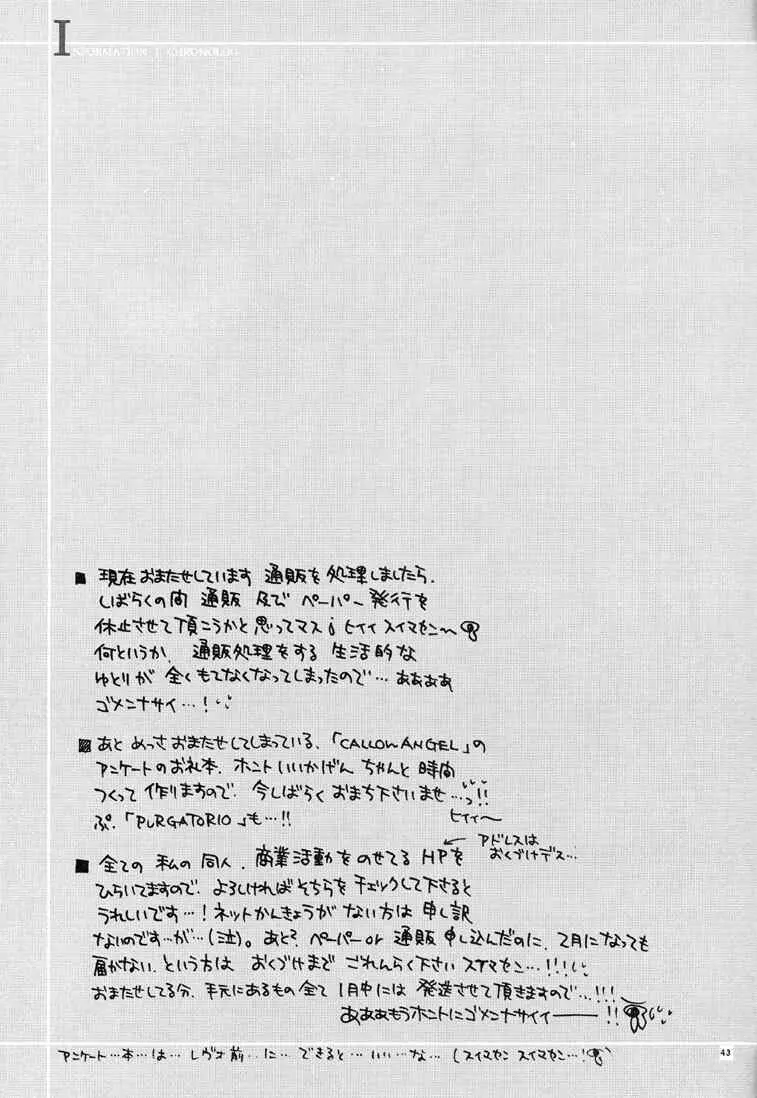 INFORMATION | CHRONOLOG
■ 現在 おまたせしています 通販を 処理しましたら、
しばらくの間 通販 及び ペーパー 発行を
休止させて頂こうかと思ってマス¡ ヒイィ スイマセン〜
何というか、通販処理をする 生活的な
ゆとりが 全くもてなくなってしまったので…ああああ
ゴメンナサイ…!
■ あと めっさ おまたせしてしまっている、「CALLOW ANGEL」の
アンケートのお礼本、ホント いいかげん ちゃんと 時間
つくって 作りますので、今しばらく おまち下さいませ…っ!!
ぷ、「PURGATORIO」も…!!
ヒイィ〜
■ 全ての 私の 同人、商業活動をのせてる HPを
← アドレスは
おくづけデス…
ひらいてますので、よろしければそちらを チェックして下さると
うれしいです…!ネットかんきょうが ない方は 申し訳
ないのです…が…(泣)。あと、ペーパー or 通販 申し込んだのに、2月になっても
届かない、という方は おくづけまで ごれんらく下さい スイマセン…!!!
おまたせしてる分、手元にあるもの全て 1月中には 発送させて頂きますので…!!!
あああもうホントにゴメンナサイィ――!!
アンケート…本…は… レヴォ前…に… できると…いい…な… (スイマセン スイマセン…!
43